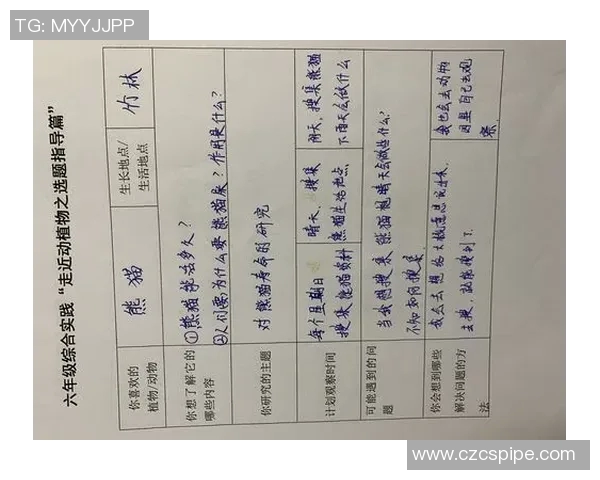 TG: MYYJJPP
六年级综合实践“走近动植物之选题指导篇”
你喜欢的
植物/动物
熊猫
生长地点/
生活地点
竹林
你想了解它的
哪些内容
①熊猫能活多久?
②人们要为什么要熊猫来?作用是什么?
你研究的主题
对熊猫寿命的研究
计划观察时间
每个星期日
搜集熊猫资料
晴天,搜集
熊猫生活地点
阴天,搜集熊猫
下雨天会做什么
可能遇到的问
题
当我想搜集熊猫晴天会做些什么?
不知如何搜集
你会想到哪些
解决问题的方
法
去搜,就能搜到了.
我也会去动物
园里自己去观
察.
www.czcspipe.com